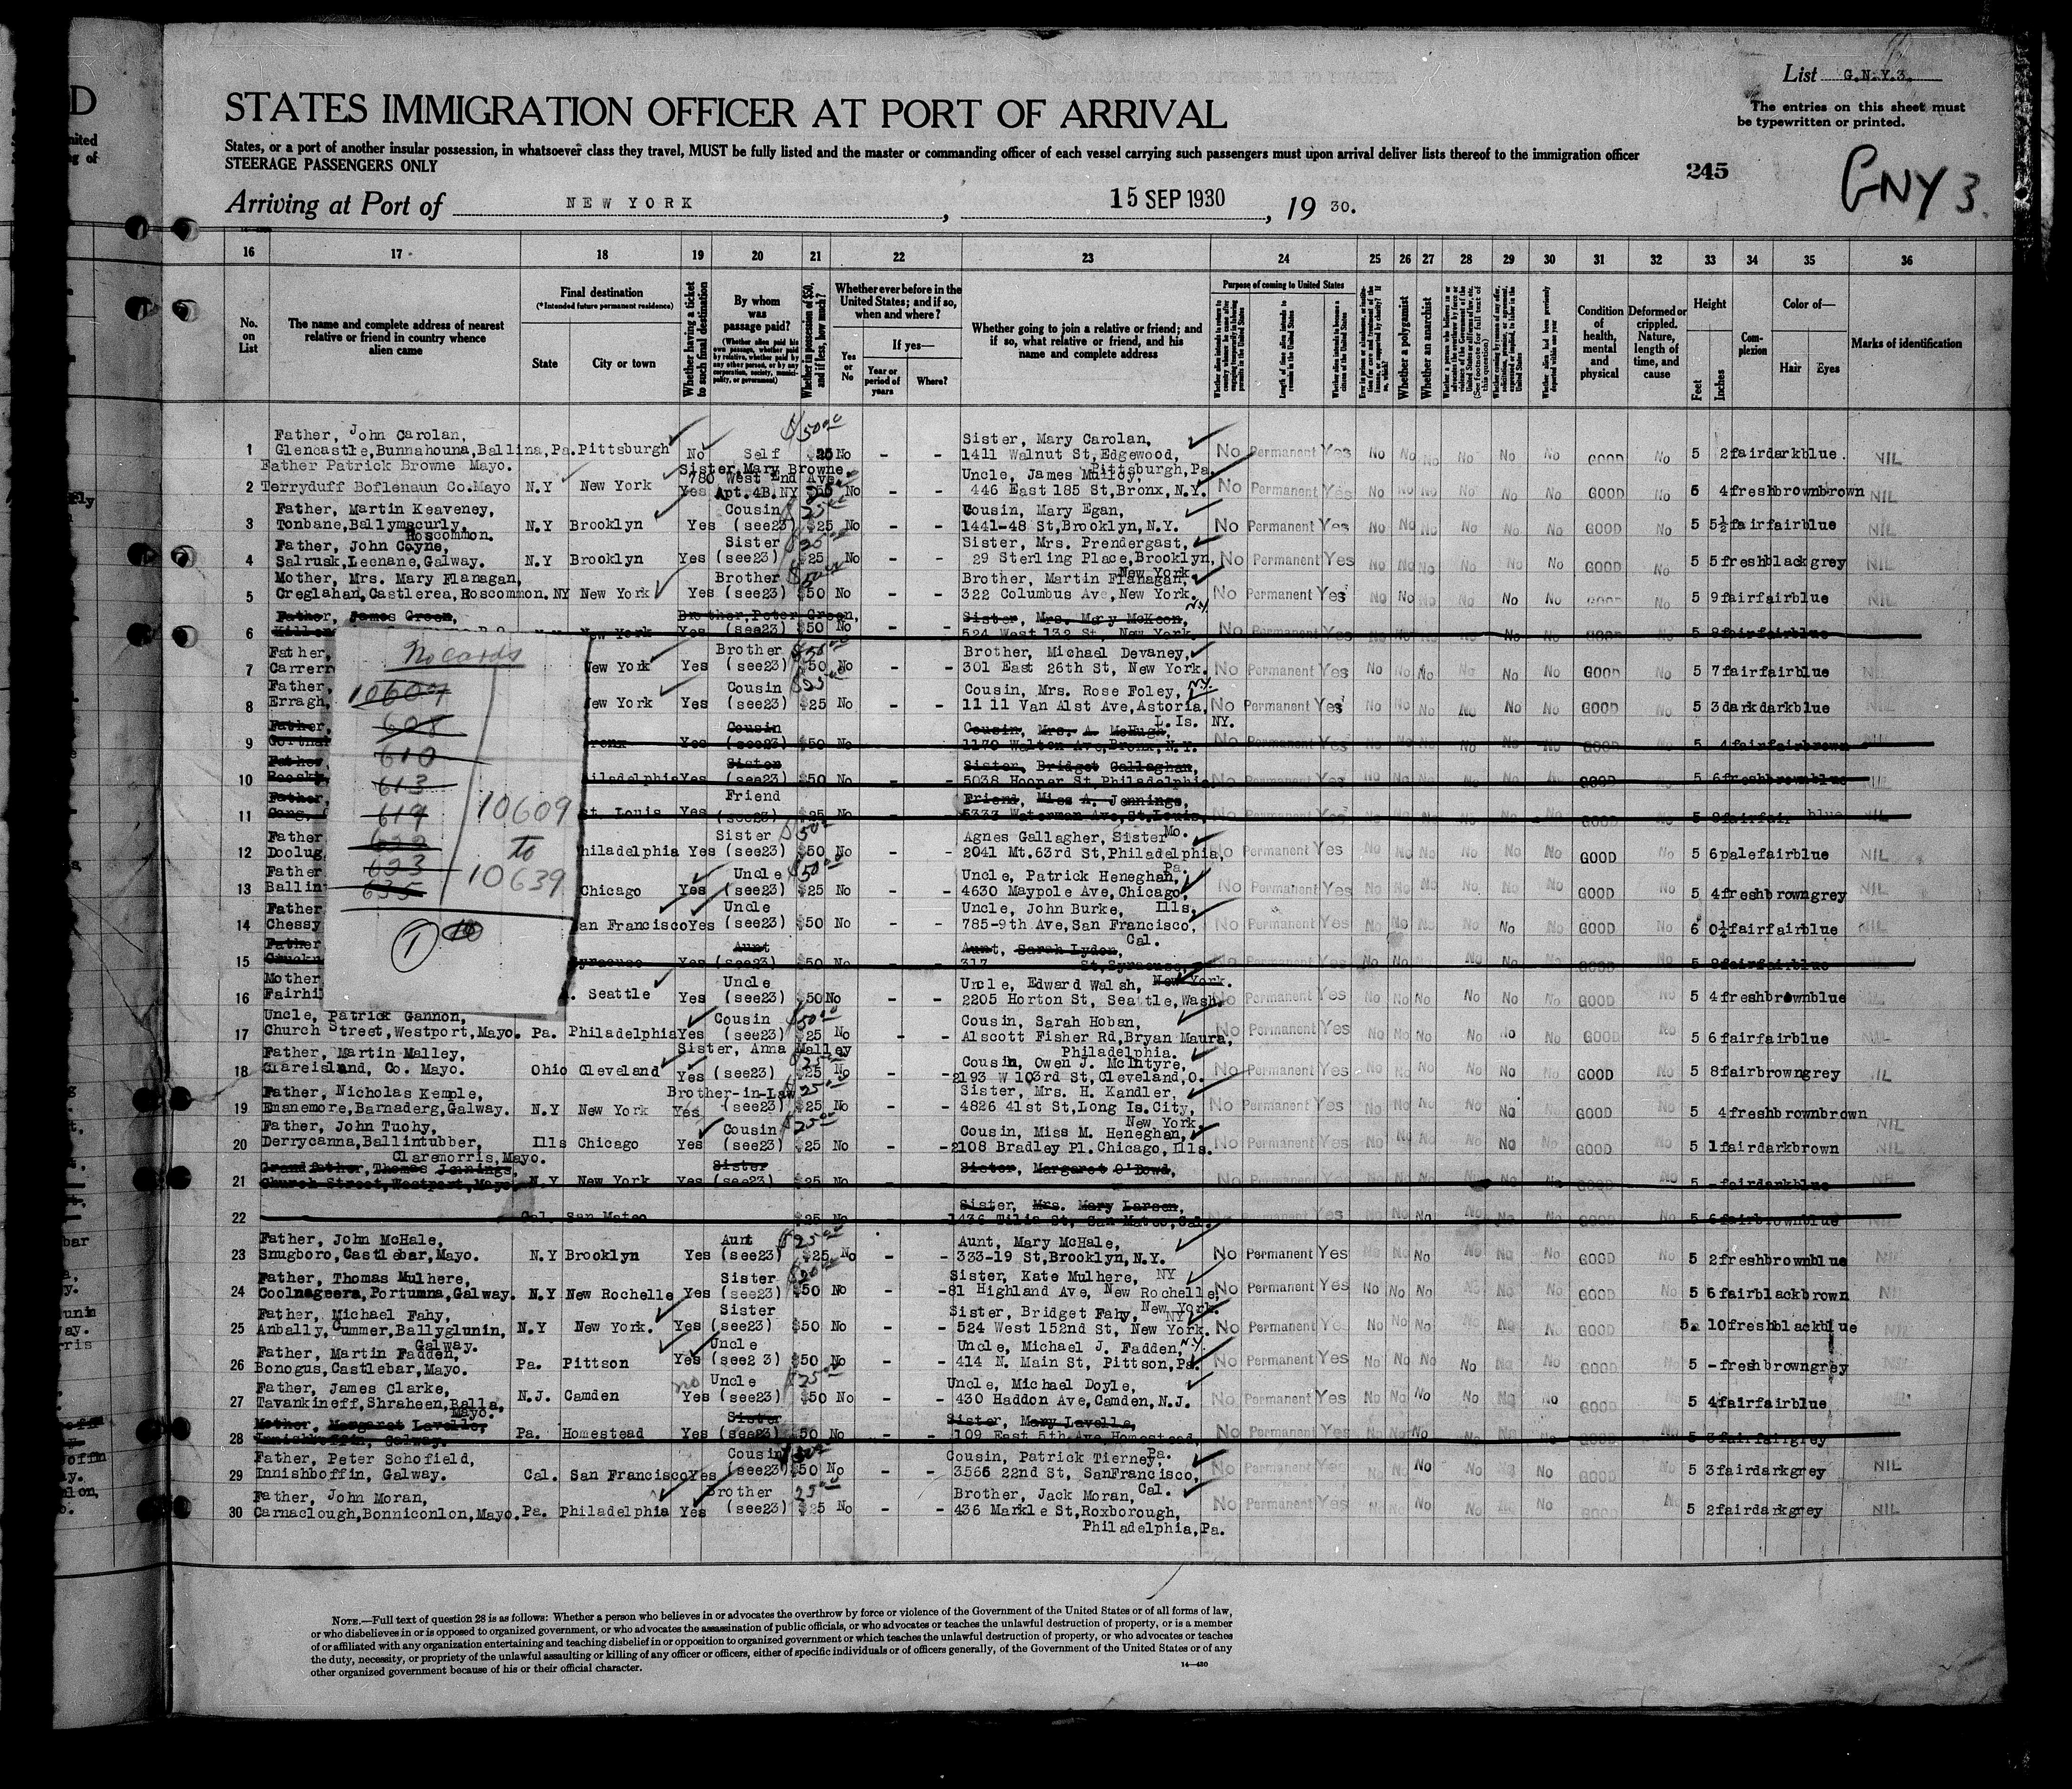 List G.N.Y.3.
STATES IMMIGRATION OFFICER AT PORT OF ARRIVAL
The entries on this sheet must
be typewritten or printed.
States, or a port of another insular possession, in whatsoever class they travel, MUST be fully listed and the master or commanding officer of each vessel carrying such passengers must upon arrival deliver lists thereof to the immigration officer
STEERAGE PASSENGERS ONLY
245
GNY 3.
Arriving at Port of NEW YORK, 15 SEP 1930, 19 30.
16 17 18 19 20 21 22 23 24 25 26 27 28 29 30 31 32 33 34 35 36
No. on List
The name and complete address of nearest relative or friend in country whence alien came
Final destination
(*Intended future permanent residence)
State City or town
Whether having a ticket to such final destination
By whom was passage paid?
(Whether alien paid his own passage, whether paid by relative, whether paid by any other person, or by any corporation, society, municipality, or government)
Whether in possession of $50, and if less, how much?
Whether ever before in the United States; and if so, when and where?
Yes or No
If yes—
Year or period of years Where?
Whether going to join a relative or friend; and if so, what relative or friend, and his name and complete address
Purpose of coming to United States
Whether a polygamist
Whether an anarchist
Condition of health, mental and physical
Deformed or crippled. Nature, length of time, and cause
Height
Feet Inches
Complexion
Color of—
Hair Eyes
Marks of identification
Father, John Carolan, $50.00 Sister, Mary Carolan,
1 Glencastle,Bunnahouna,Ballina,Pa.Pittsburgh No Self 25 No - - 1411 Walnut St,Edgewood, No Permanent Yes No No No No No No GOOD No 5 2 fair dark blue. NIL
Mayo. Pittsburgh,Pa.
Father Patrick Browne Sister,Mary Browne Uncle, James Mulroy,
780 West End Ave
2 Terryduff Boflenaun Co.Mayo N.Y New York Yes Apt.4B,NY No - - 446 East 185 St,Bronx,N.Y. No Permanent Yes No No No No No No GOOD No 5 4 fresh brown brown NIL
Father, Martin Keaveney, Cousin Cousin, Mary Egan,
3 Tonbane,Ballymacurly, N.Y Brooklyn Yes (see23) $25 No - - 1441-48 St,Brooklyn,N.Y. No Permanent Yes No No No No No No GOOD No 5 5½ fair fair blue NIL
Roscommon.
Father, John Coyne, Sister Sister, Mrs. Prendergast,
4 Salrusk,Leenane,Galway. N.Y Brooklyn Yes (see23) $25 No - - 29 Sterling Place,Brooklyn, No Permanent Yes No No No No No No GOOD No 5 5 fresh black grey NIL
New York.
Mother, Mrs. Mary Flanagan, Brother Brother, Martin Flanagan,
5 Creglahan,Castlerea,Roscommon. NY New York Yes (see23) $50 No - - 322 Columbus Ave,New York. No Permanent Yes No No No No No No GOOD 5 9 fair fair blue NIL
N.Y.
Father, James Green, Brother,Peter Green, Sister, Mrs. Mary McKeon,
6 New York Yes (see23) $50 No - - 524 West 132 St, New York. No Permanent Yes No No No No No No GOOD 5 8 fair fair blue
Father, Brother Brother, Michael Devaney,
7 Carrerr New York Yes (see23) $50 No - - 301 East 26th St, New York. No Permanent Yes No No No No No No GOOD No 5 7 fair fair blue NIL
N.Y.
Father, Cousin $25.00 Cousin, Mrs. Rose Foley,
8 Erragh, New York Yes (see23) $25 No - - 11 11 Van Alst Ave,Astoria, No Permanent Yes No No No No No No GOOD No 5 3 dark dark blue NIL
L.Is. NY.
Father, Cousin Cousin, Mrs. A. McHugh,
9 Bronx Yes (see23) $50 No 1170 Walton Ave,Bronx,N.Y. No Permanent Yes No No No No No No GOOD 5 4 fair fair brown NIL
Father, Sister Sister, Bridget Callaghan,
10 hiladelphia Yes (see23) $50 No - - 5038 Hooper St,Philadelphia No Permanent Yes No No No No No No GOOD 5 6 fresh brown blue NIL
Father, Friend Friend, Miss A. Jennings,
11 St. Louis Yes (see23) $25 No 5333 Waterman Ave,St.Louis, No Permanent Yes No No No No No No GOOD 5 8 fair fair blue NIL
Mo.
Father Sister $50 Agnes Gallagher, Sister
12 Doolug hiladelphia Yes (see23) $50 No - - 2041 Mt.63rd St,Philadelphia, No Permanent Yes No No No No No No GOOD No 5 6 pale fair blue NIL
Pa.
Father Uncle $50.00 Uncle, Patrick Heneghan,
13 Ballin Chicago Yes (see23) $25 No - - 4630 Maypole Ave,Chicago, No Permanent Yes No No No No No No GOOD No 5 4 fresh brown grey NIL
Ills.
Father Uncle Uncle, John Burke,
14 Chessy an Francisco Yes (see23) $50 No - - 785-9th Ave,San Francisco, No Permanent Yes No No No No No No GOOD No 6 0½ fair fair blue NIL
Cal.
Father Aunt Aunt, Sarah Lydon,
15 Syracuse Yes (see23) $50 No - - 317 St,Syracuse, No Permanent Yes No No No No No No GOOD 5 8 fair fair blue
New York.
Mother Uncle Uncle, Edward Walsh,
16 Fairhi . Seattle Yes (see23) $50 No - - 2205 Horton St, Seattle,Wash. No Permanent Yes No No No No No No GOOD No 5 4 fresh brown blue NIL
No cards
10607
608
610
613
619
622
623
635
10609
to
10639
1 10
Uncle, Patrick Gannon, Cousin $50.00 Cousin, Sarah Hoban,
17 Church Street,Westport,Mayo. Pa. Philadelphia Yes (see23) $25 No - - Alscott Fisher Rd,Bryan Maura, No Permanent Yes No No No No No No GOOD No 5 6 fair fair blue NIL
Philadelphia.
Father, Martin Malley, Sister, Anna Malley Cousin, Owen J. McIntyre,
18 Clareisland, Co. Mayo. Ohio Cleveland Yes (see23) $25 No - - 2193 W 103rd St,Cleveland,O. No Permanent Yes No No No No No No GOOD No 5 8 fair brown grey NIL
Father, Nicholas Kemple, Brother-in-Law $25.00 Sister, Mrs. H. Kandler,
19 Emanemore,Barnaderg,Galway. N.Y New York Yes (see23) $25 No - - 4826 41st St,Long Is.City, No Permanent Yes No No No No No No GOOD No 5 4 fresh brown brown NIL
New York.
Father, John Tuohy, Cousin $25.00 Cousin, Miss M. Heneghan,
20 Derrycanna,Ballintubber, Ills Chicago Yes (see23) $25 No - - 2108 Bradley Pl.Chicago,Ills. No Permanent Yes No No No No No No GOOD No 5 1 fair dark brown NIL
Claremorris,Mayo.
Grandfather,Thomas Jennings, Sister Sister, Margaret O'Dowd,
21 Church Street,Westport,Mayo. N.Y New York Yes (see23) $25 No No Permanent Yes No No No No No No GOOD No 5 - fair dark blue NIL
Sister, Mrs. Mary Larsen,
22 Cal. San Mateo $25 No - 1436 Tilia St, San Mateo,Cal. No Permanent Yes No No No No No No GOOD No 5 6 fair brown blue NIL
Father, John McHale, Aunt $25.00 Aunt, Mary McHale,
23 Snugboro,Castlebar,Mayo. N.Y Brooklyn Yes (see23) $25 No - - 333-19 St,Brooklyn,N.Y. No Permanent Yes No No No No No No GOOD No 5 2 fresh brown blue NIL
Father, Thomas Mulhere, Sister Sister, Kate Mulhere, NY
24 Coolnageera,Portumna,Galway. N.Y New Rochelle Yes (see23) $50 No - - 81 Highland Ave, New Rochelle, No Permanent Yes No No No No No No GOOD No 5 6 fair black brown NIL
New York.
Father, Michael Fahy, Sister Sister, Bridget Fahy, NY
25 Anbally,Cummer,Ballyglunin, N.Y New York. Yes (see23) $50 No - - 524 West 152nd St, New York. No Permanent Yes No No No No No No GOOD No 5 10 fresh black blue NIL
Galway. N.Y.
Father, Martin Fadden, Uncle Uncle, Michael J. Fadden,
26 Bonogus,Castlebar,Mayo. Pa. Pittson Yes (see2 3) $50 No - - 414 N. Main St, Pittson,Pa. No Permanent Yes No No No No No No GOOD No 5 - fresh brown grey NIL
Father, James Clarke, no Uncle $25 Uncle, Michael Doyle,
27 Tavankineff,Shraheen,Balla, N.J. Camden Yes (see23) $50 No - - 430 Haddon Ave,Camden,N.J. No Permanent Yes No No No No No No GOOD No 5 4 fair fair blue NIL
Mayo.
Mother, Margaret Lavelle, Sister Sister, Mary Lavelle,
28 Innishboffin, Galway. Pa. Homestead Yes (see23) 50 No - - 109 East 5th Ave,Homestead, No Permanent Yes No No No No No No GOOD No 5 3 fair fair grey
Pa.
Father, Peter Schofield, Cousin Cousin, Patrick Tierney,
29 Innishboffin, Galway. Cal. San Francisco Yes (see23) $50 No - - 3566 22nd St, SanFrancisco, No Permanent Yes No No No No No No GOOD No 5 3 fair dark grey NIL
Cal.
Father, John Moran, Brother 25.00 Brother, Jack Moran,
30 Carnaclough,Bonniconlon,Mayo. Pa. Philadelphia Yes (see23) $25 No - - 436 Markle St,Roxborough, No Permanent Yes No No No No No No GOOD No 5 2 fair dark grey NIL
Philadelphia,Pa.
NOTE.—Full text of question 28 is as follows: Whether a person who believes in or advocates the overthrow by force or violence of the Government of the United States or of all forms of law,
or who disbelieves in or is opposed to organized government, or who advocates the assassination of public officials, or who advocates or teaches the unlawful destruction of property, or is a member
of or affiliated with any organization entertaining and teaching disbelief in or opposition to organized government or which teaches the unlawful destruction of property, or who advocates or teaches
the duty, necessity, or propriety of the unlawful assaulting or killing of any officer or officers, either of specific individuals or of officers generally, of the Government of the United States or of any
other organized government because of his or their official character.
14—430